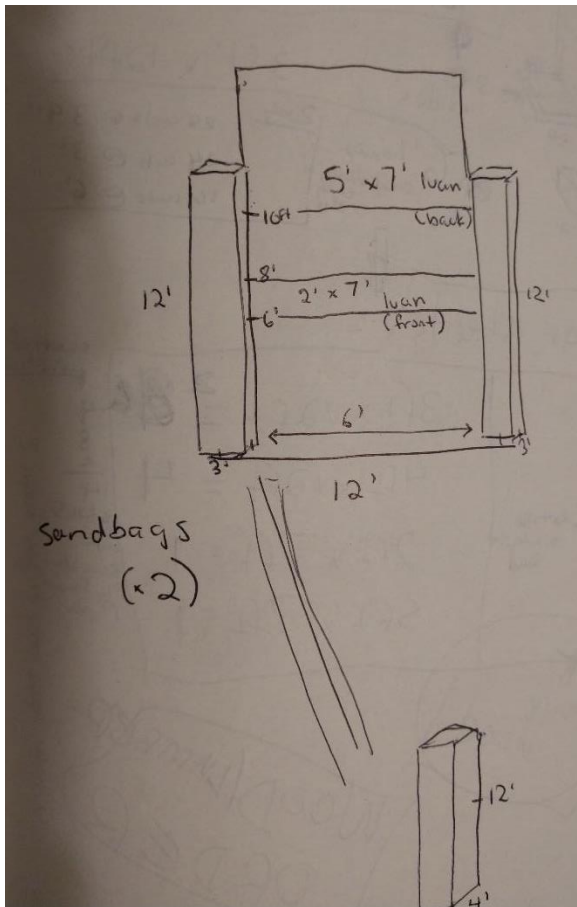 5' x 7' luan
(back)
10ft
8'
2' x 7' luan
(front)
6'
12'
12'
6'
3'
3'
12'
sandbags
(x2)
12'
4'